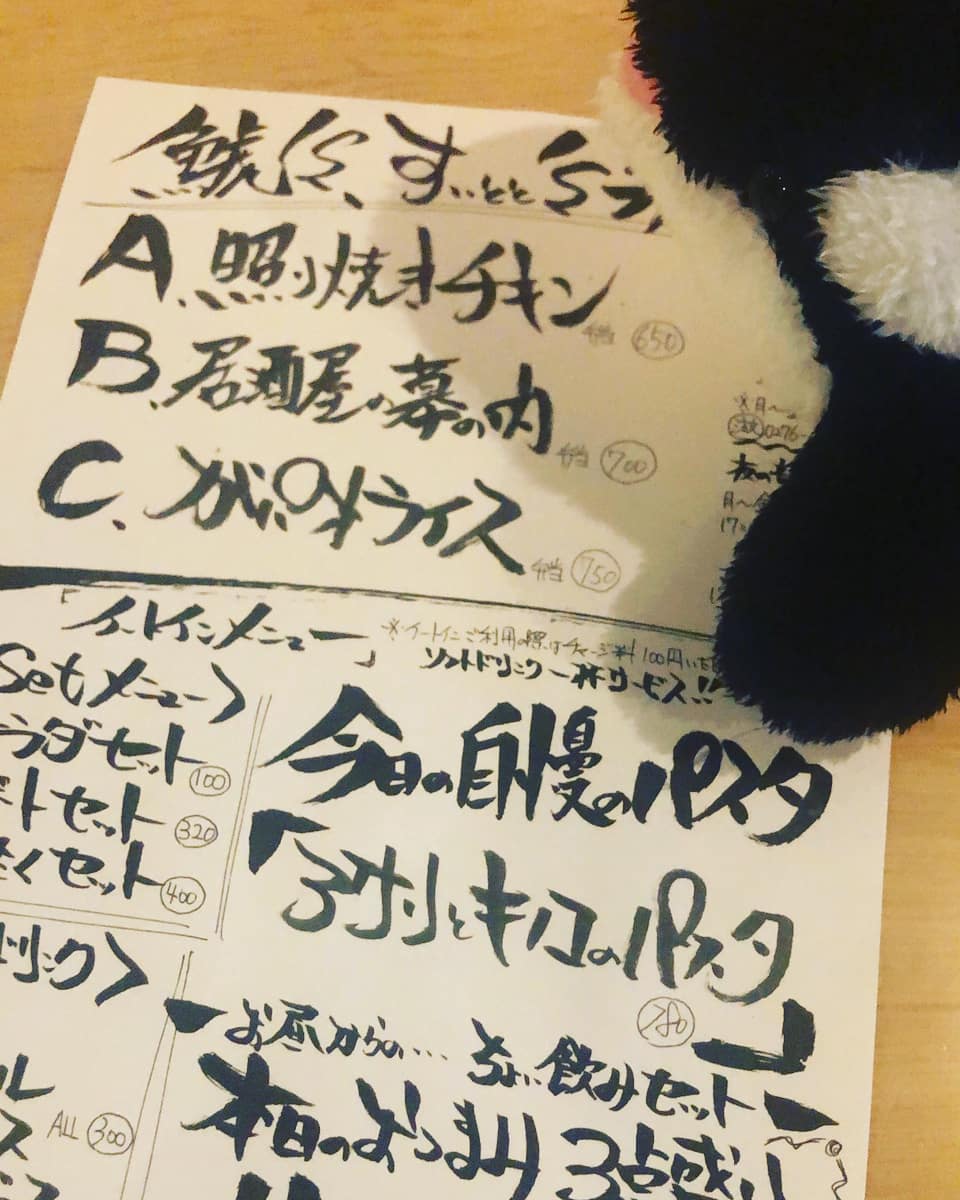 A、照り焼きチキン 弁当 650
B、居酒屋の幕の内 弁当 700
C、ガパオライス 弁当 750
※月〜
0276-
月〜金
17:
「イートインメニュー」
※イートインご利用の際はチャージ料100円いただ
ソフトドリンク一杯サービス!!
Setメニュー〉
ラダセット 100
セット 320
くセット 400
ドリンク〉
ル
ス
ALL 300
今日の自慢のパスタ
キノコのパスタ」
780
お昼からの…ちょい飲みセット
本日のおつまみ3点盛り